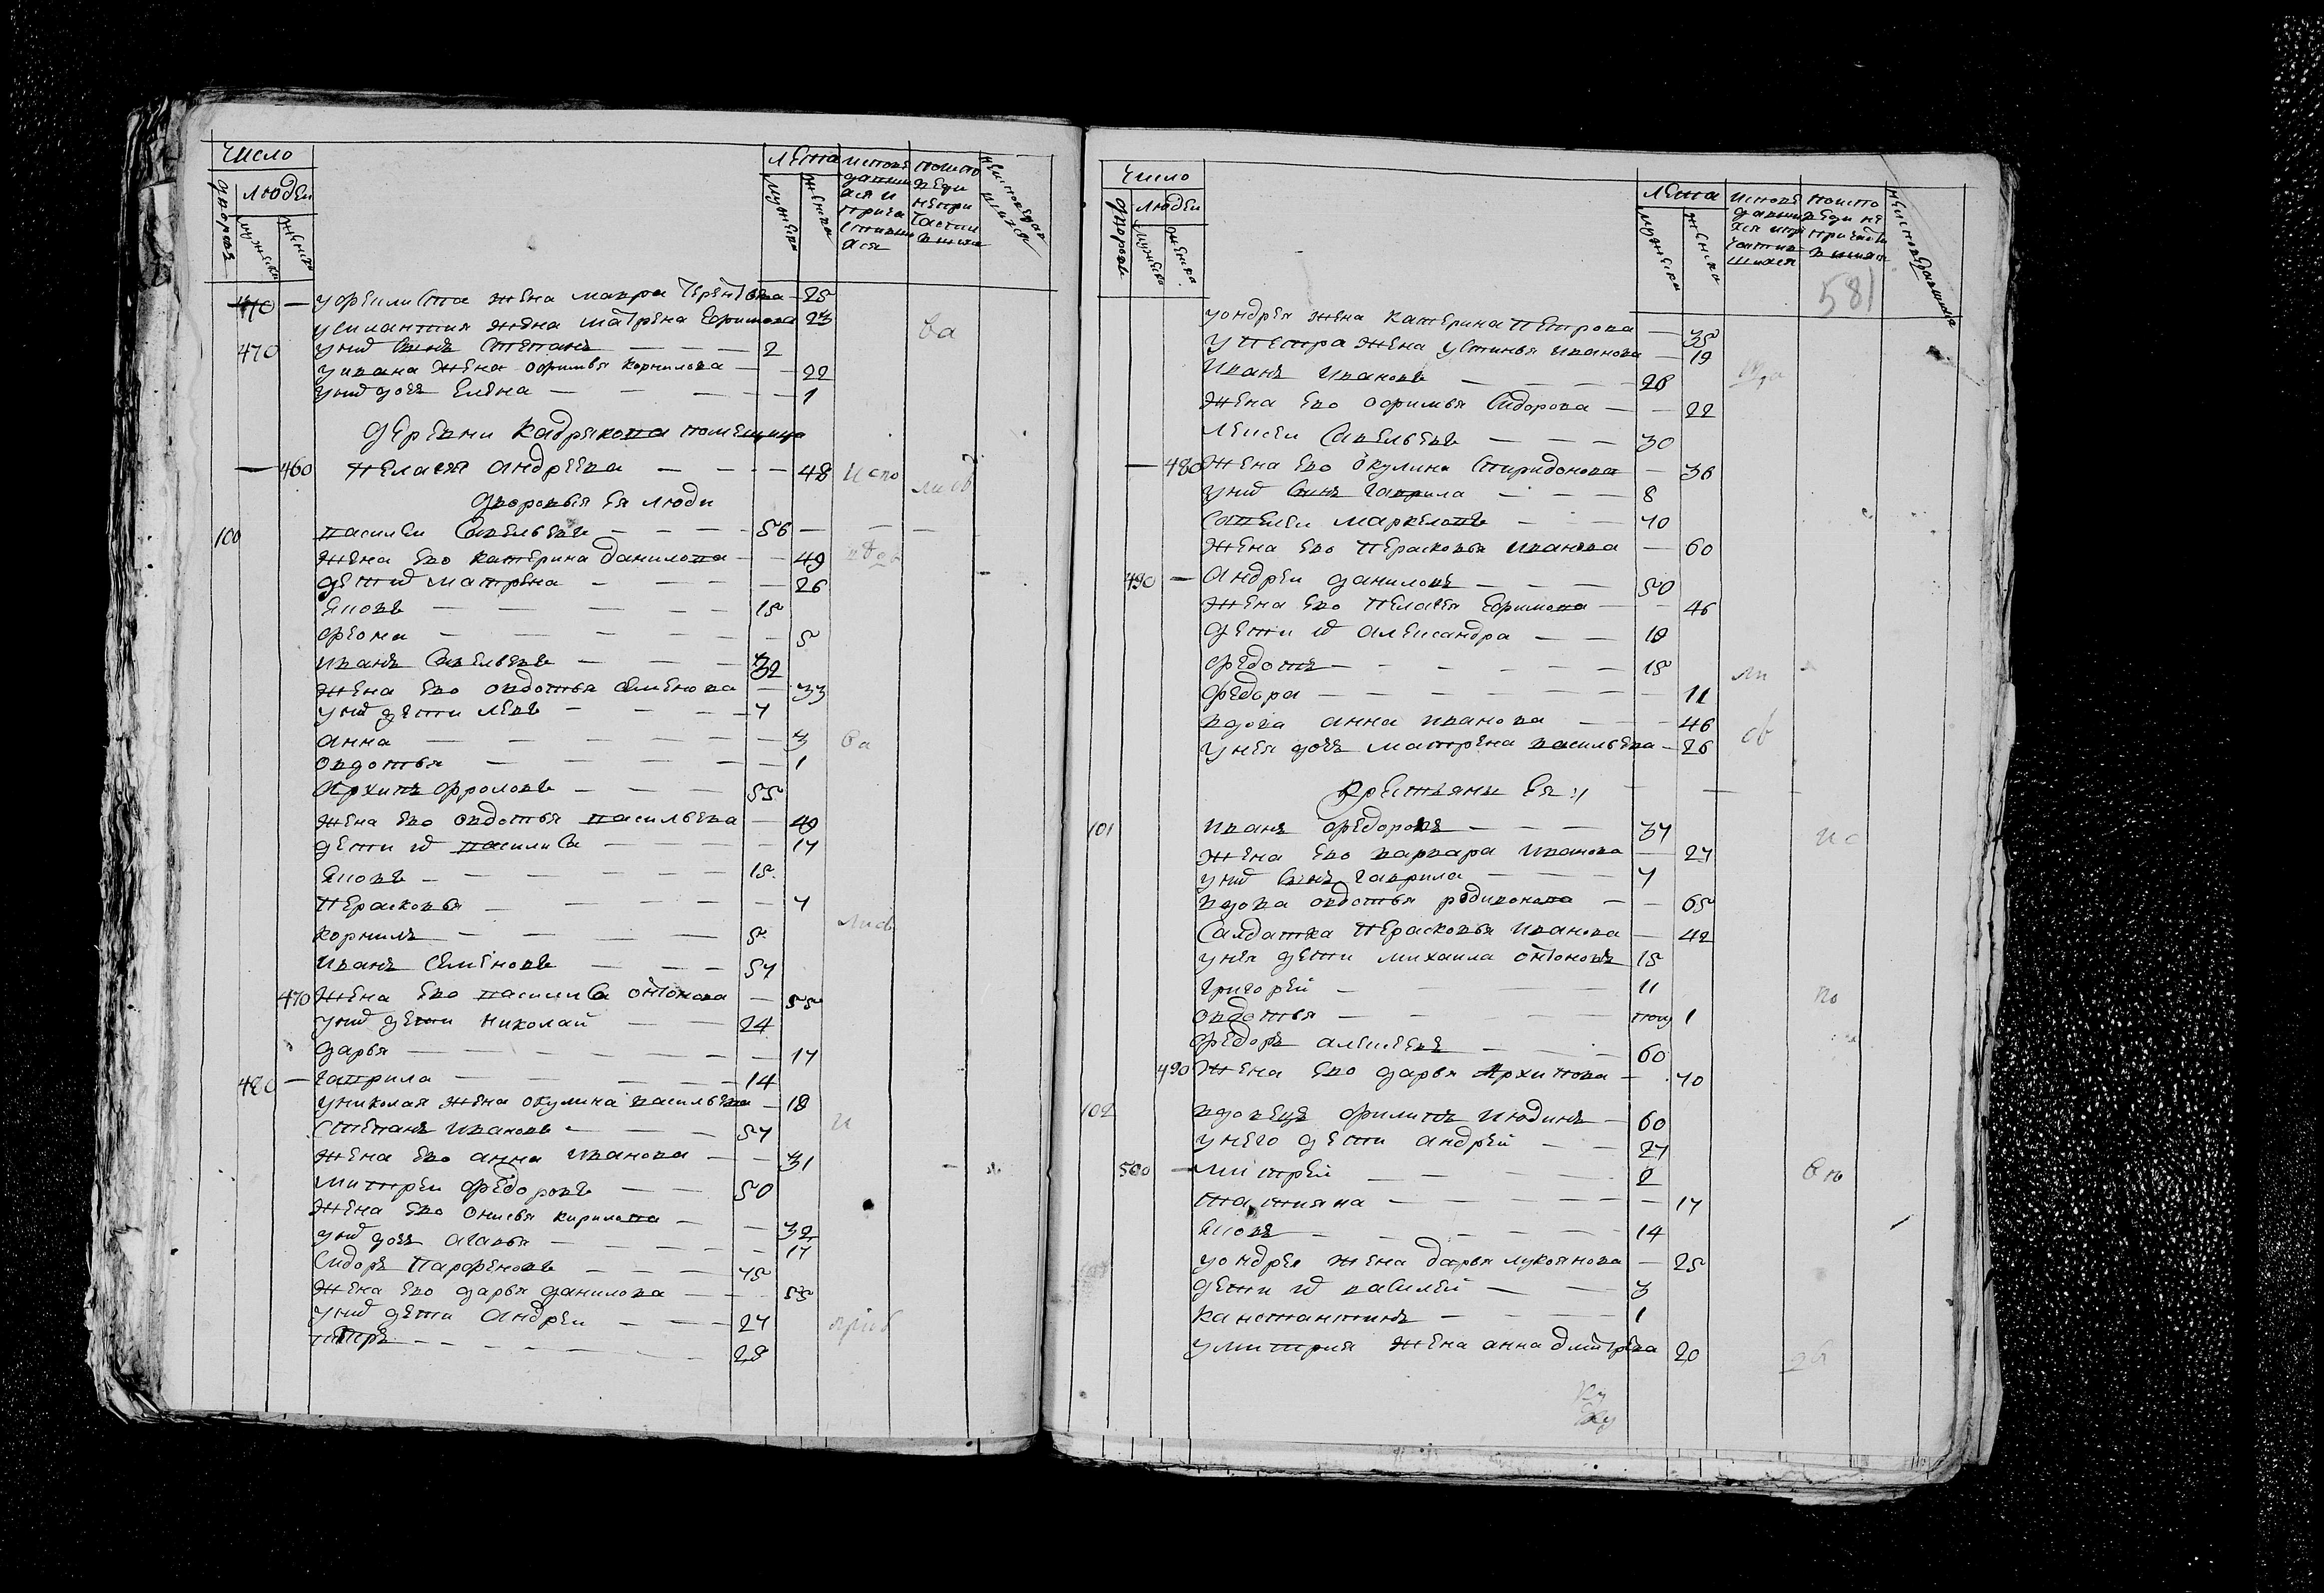 Число
людей
дворовъ
мужеска
женска
лета
мужеска
женска
исповедавшиася и причастившиася
10 — у Феилиста жена мавра Терентьева — 25
у силантия жена матрена Ефимова 23
470 у них сынъ степанъ — — — 2
у ивана жена офимья корнилова — 22
у них дочь Елена — — — 1
Деревни Кадрякова помещица
— 460 пелагея андреева — — — 48
дворовыя ея люди
100 василеи савельевъ — — — 56
жена ево катерина данилова — 49
дети их матрена — — — 26
яковъ — — — 15
феона — — — 5
иванъ савельевъ — — — 32
жена ево овдотья семенова — 33
у них дети левъ — — — 7
анна — — — 3
овдотья — — — 1
Архипъ фроловъ — — — 55
жена ево овдотья васильева — 49
дети их василиса — — — 17
яковъ — — — 15
перасковья — — — 7
корнилъ — — — 5
иванъ семеновъ — — — 57
470 жена ево василиса онтонова — 55
у них дети николай — — 24
дарья — — — 17
480 — гаврила — — — 14
у николая жена окулина васильева — 18
степанъ ивановъ — — — 57
жена ево анна иванова — — 31
митреи федоровъ — — 50
жена ево онисья кирилова — 32
у них дочь агафья — — — 17
сидоръ парфеновъ — — — 75
жена ево дарья данилова — 55
у них дети андреи — — — 27
петръ — — — 28
Число
людеи
дворовъ
мужеска
женска
лета
мужеска
женска
581
у ондрея жена катерина петрова — 35
у петра жена устинья иванова — 19
иванъ ивановъ — — — 28
жена ево офимья сидорова — 22
— — — 30
— 480 жена ево окулина спиридонова — 36
у них сынъ гаврила — — — 8
савелеи маркеловъ — — 70
жена ево перасковья иванова — 60
490 — андреи даниловъ — — — 50
жена ево пелагея ефимова — 46
дети их александра — — 18
федотъ — — — 15
федора — — — 11
вдова анна иванова — — — 46
у нея дочь матрена васильева — 26
Крестьяне ея
101 иванъ федоровъ — — — 37
жена ево варвара иванова — 27
у них сынъ гаврила — — — 7
вдова овдотья родионова — — 65
салдатка перасковья иванова — 42
у нея дети михаила онтоновъ 15
григорей — — — 11
овдотья — — — 1
федоръ алексеевъ — — — 60
490 жена ево дарья Архипова — 70
102 вдовецъ филипъ июдинъ — 60
у него дети андрей — — 27
500 — митрей — — — 2
татияна — — — 17
яковъ — — — 14
у ондрея жена дарья лукоянова — 25
дети их василей — — 3
канстантинъ — — — 1
у митрия жена анна дмитрева 20